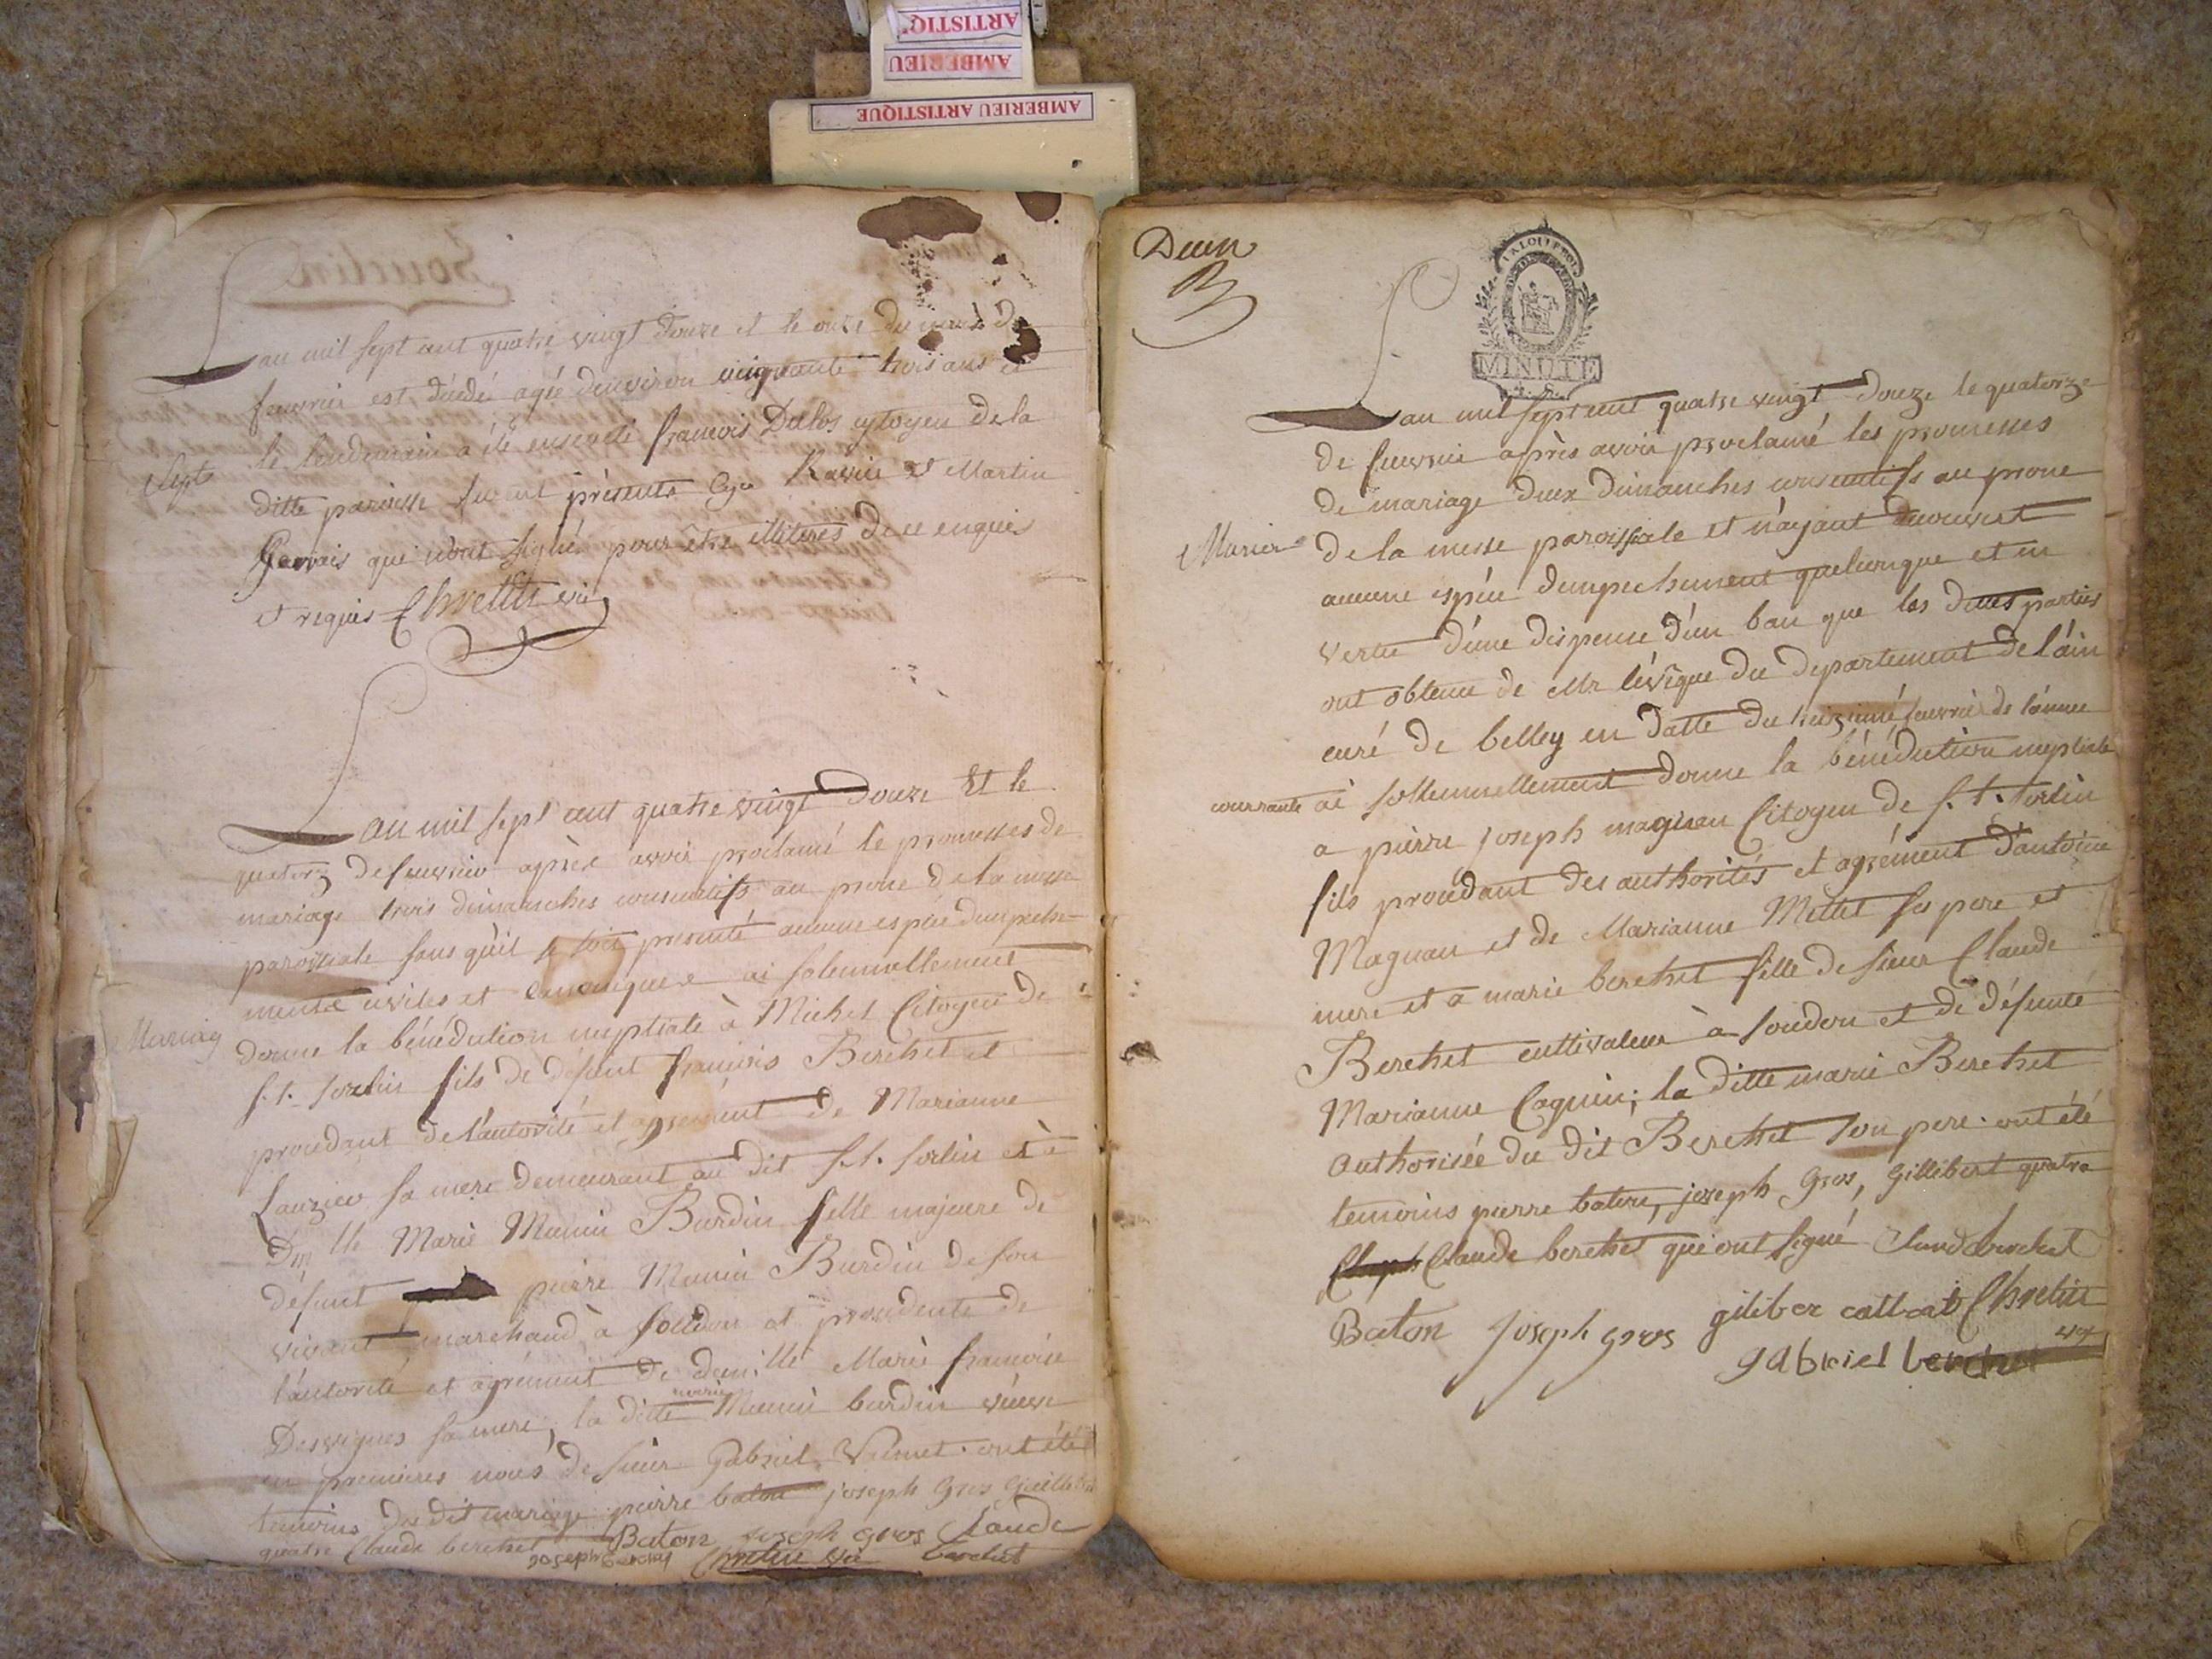 ARTISTIQ'
AMBERIEU
AMBERIEU ARTISTIQUE
Lan mil sept cent quatre vingt douze et le onze du mois de
feuvrier est décédé agé denviron cinquante trois ans et
le lendemain a été enseveli francois Dulos cytoyen de la
Sept
ditte paroisse furent présents Ravier et Martin
qui n'ont signés pour être illiterés de ce enquis
et requis Chrettin vic
Lan mil sept cent quatre vingt Douze Et le
quatorz de feuvrier après avoir proclamé le promesses de
mariage trois dimanches consecutifs au prone de la messe
paroissiale sans qu'il se soit presenté aucune espéce dempeche-
ments civiles et canonique ai solennellement
donne la bénédiction nuptiale à Michel Citoyen de
Mariag
s.t. sorlin fils de défunt francois Berchet et
procedant de l'autorité et agrement de Marianne
Lauzier sa mere demeurant au dit s.t. sorlin et à
Dm lle Marie Munin Burdin fille majeure de
défunt pierre Munin Burdin de son
vivant marchand à soudon et procedente de
l'autorité et agrément de demlle Marie francoise
Desvignes sa mere, la ditte marie Munin burdin veuve
en premieres nocés de sieur Gabriel Vernet ont été
temoins du dit mariage pierre baton joseph Gros Guillebert
quatre Claude berchet Baton joseph gros Claude
joseph berchet Chretin vic berchet
Deux
LA LOI ET LE ROI
MINUTE
4. S.
Lan mil sept cent quatre vingt douze le quatorze
de feuvrier après avoir proclamé les promesses
de mariage deux dimanches consecutifs au prone
Mariage
de la messe paroissiale et n'ayant decouvert
aucune espéce dempechement quelconque et en
vertu d'une dispense d'un ban que les dittes parties
ont obtenu de Mr l'évêque du departement de l'ain
curé de belley en datte du treiziemé feuvrié de l'année
courrante ai sollennellement donne la bénédiction nuptiale
a pierre joseph magnan Citoyen de s.t. sorlin
fils procedant des authorités et agrément d'antoine
Magnan et de Marianne Mettet ses pere et
mere et a marie berchet fille de sieur Claude
Berchet cultivateur à soudon et de défunte
Marianne Cagnin; la ditte marie Berchet
authorisée du dit Berchet son pere. ont été
temoins pierre baton, joseph Gros, Gillibert quatre
Claude berchet qui ont signé Claude berchet
Baton Joseph gros giliber cattant Chretin
vic
gabriel berchet